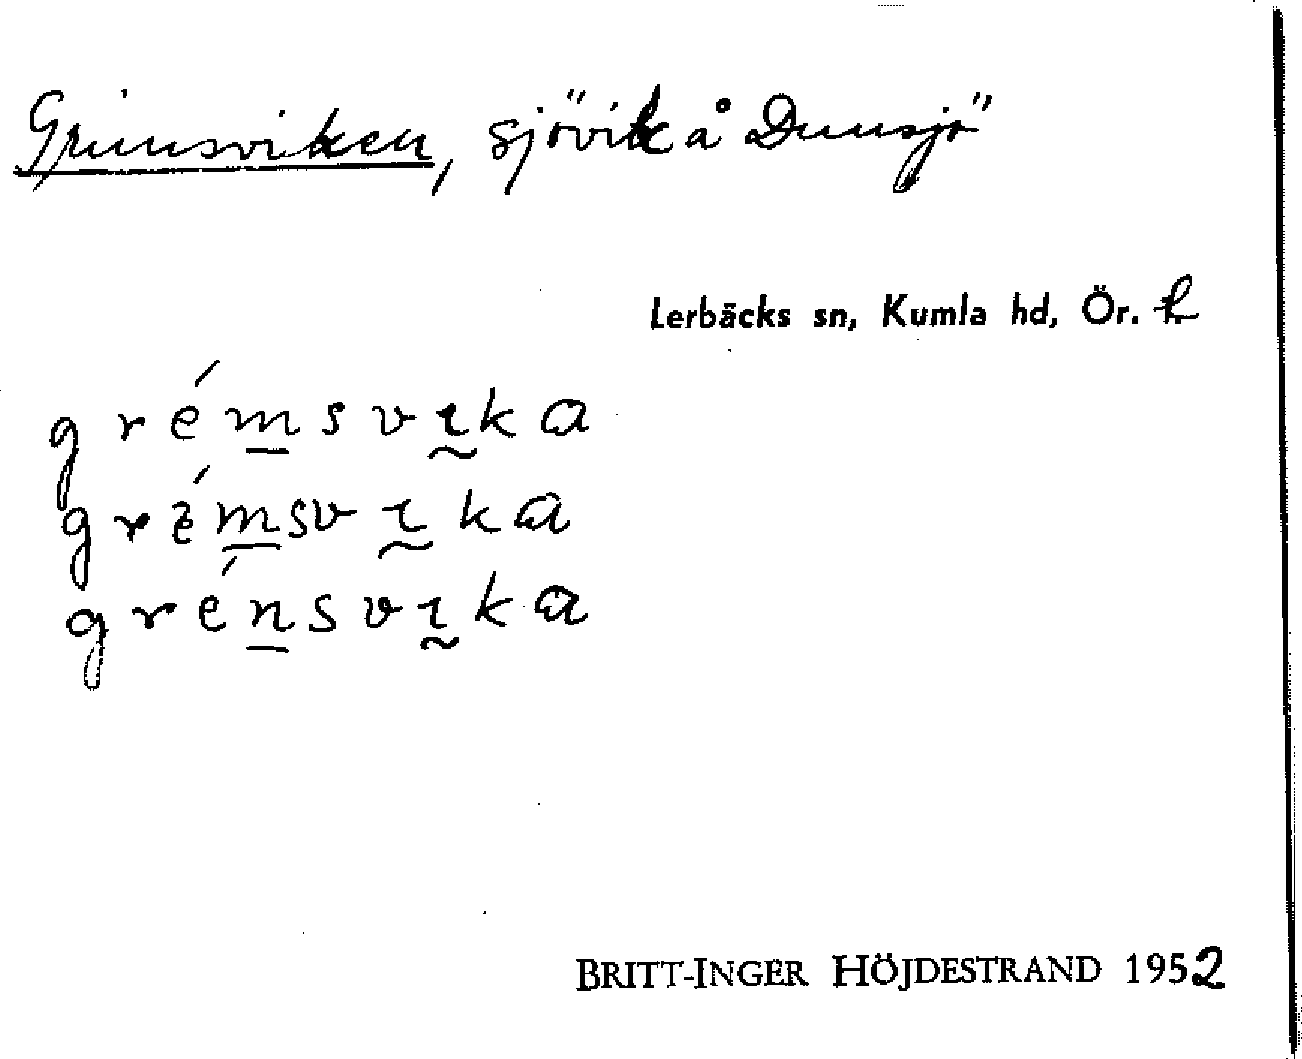 Grimsviken, sjövik å Dunsjö
Lerbäcks sn, Kumla hd, Ör. l
grémsvıka
grémsvıka
grénsvıka
BRITT-INGER HÖJDESTRAND 1952